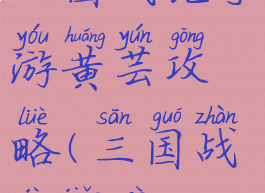 yóu huáng yún gōng
游黄芸攻
lüè sān guó zhàn
略(三国战